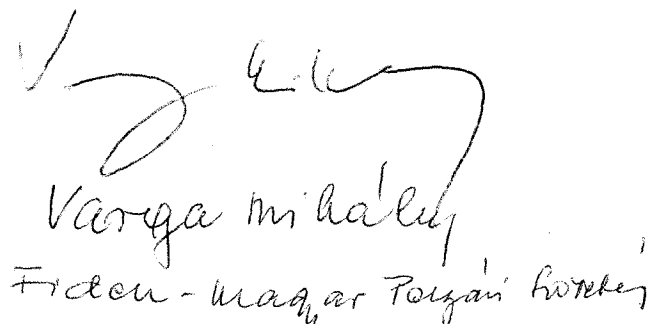 Varga Mihály
Fidesz - Magyar Polgári Szövetség